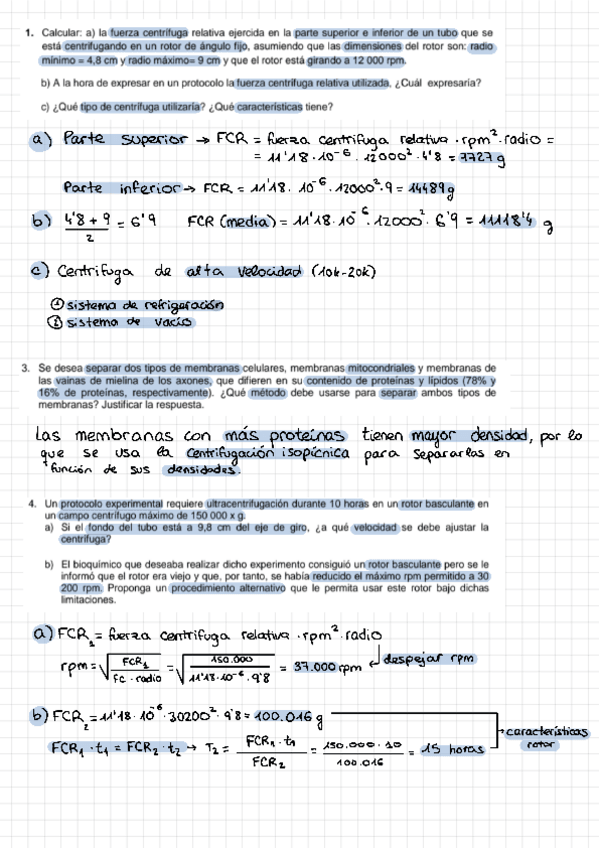 1. Calcular: a) la fuerza centrífuga relativa ejercida en la parte superior e inferior de un tubo que se
está centrifugando en un rotor de ángulo fijo, asumiendo que las dimensiones del rotor son: radio
mínimo = 4,8 cm y radio máximo= 9 cm y que el rotor está girando a 12 000 rpm.
b) A la hora de expresar en un protocolo la fuerza centrífuga relativa utilizada, ¿Cuál expresaría?
c) ¿Qué tipo de centrífuga utilizaría? ¿Qué características tiene?
a) Parte superior → FCR = fuerza centrífuga relativa · rpm² · radio =
= 11'18 · 10⁻⁶ · 12000² · 4'8 = 7727 g
Parte inferior → FCR = 11'18 · 10⁻⁶ · 12000² · 9 = 14489 g
b) 4'8 + 9 / 2 = 6'9 FCR (media) = 11'18 · 10⁻⁶ · 12000² · 6'9 = 11118'4 g
c) Centrifuga de alta velocidad (10k-20k)
① sistema de refrigeración
② sistema de vacío
3. Se desea separar dos tipos de membranas celulares, membranas mitocondriales y membranas de
las vainas de mielina de los axones, que difieren en su contenido de proteínas y lípidos (78% y
16% de proteínas, respectivamente). ¿Qué método debe usarse para separar ambos tipos de
membranas? Justificar la respuesta.
Las membranas con más proteínas tienen mayor densidad, por lo
que se usa la centrifugación isopícnica para separarlas en
función de sus densidades.
4. Un protocolo experimental requiere ultracentrifugación durante 10 horas en un rotor basculante en
un campo centrífugo máximo de 150 000 x g.
a) Si el fondo del tubo está a 9,8 cm del eje de giro, ¿a qué velocidad se debe ajustar la
centrífuga?
b) El bioquímico que deseaba realizar dicho experimento consiguió un rotor basculante pero se le
informó que el rotor era viejo y que, por tanto, se había reducido el máximo rpm permitido a 30
200 rpm. Proponga un procedimiento alternativo que le permita usar este rotor bajo dichas
limitaciones.
a) FCR₁ = fuerza centrífuga relativa · rpm² · radio
rpm = √ FCR₁ / fc · radio = √ 150.000 / 11'18 · 10⁻⁶ · 9'8 = 37.000 rpm ↲ despejar rpm
b) FCR₂ = 11'18 · 10⁻⁶ · 30200² · 9'8 = 100.016 g
FCR₁ · t₁ = FCR₂ · t₂ → T₂ = FCR₁ · t₁ / FCR₂ = 150.000 · 10 / 100.016 = 15 horas
características
rotor